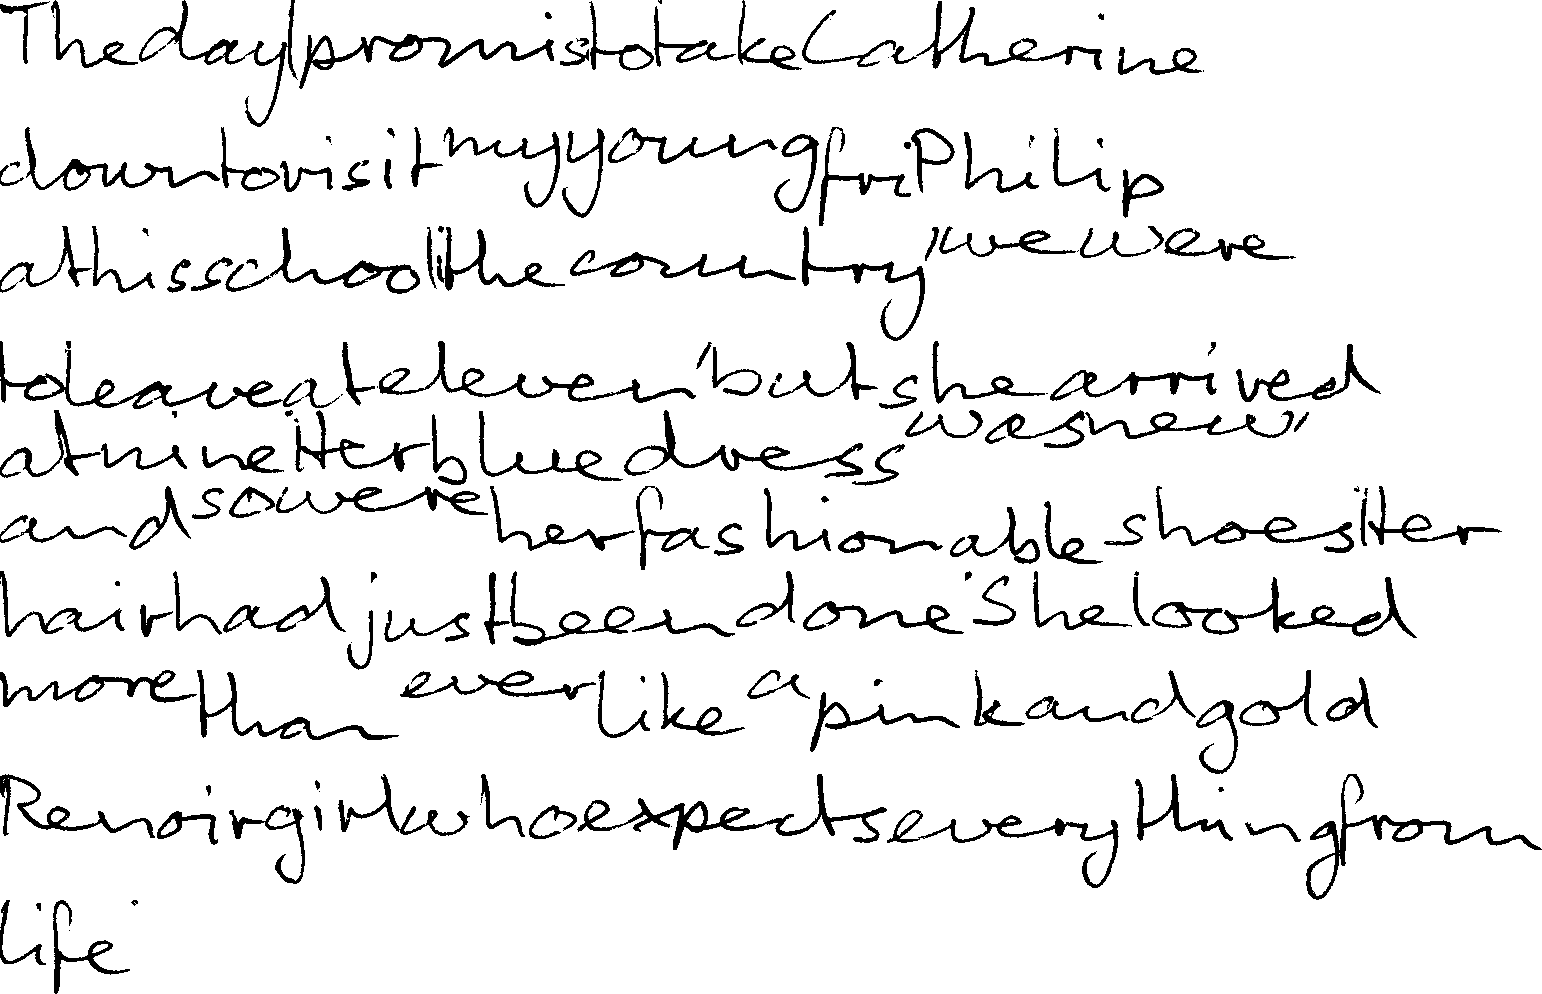 The day I promis to take Catherine
down to visit my young fri Philip
at his school i the country, we were
to leave at eleven, but she arrived
at nine. Her blue dress was new,
and so were her fashionable shoes. Her
hair had just been done. She looked
more than ever like a pink and gold
Renoir girl who expects everything from
life.